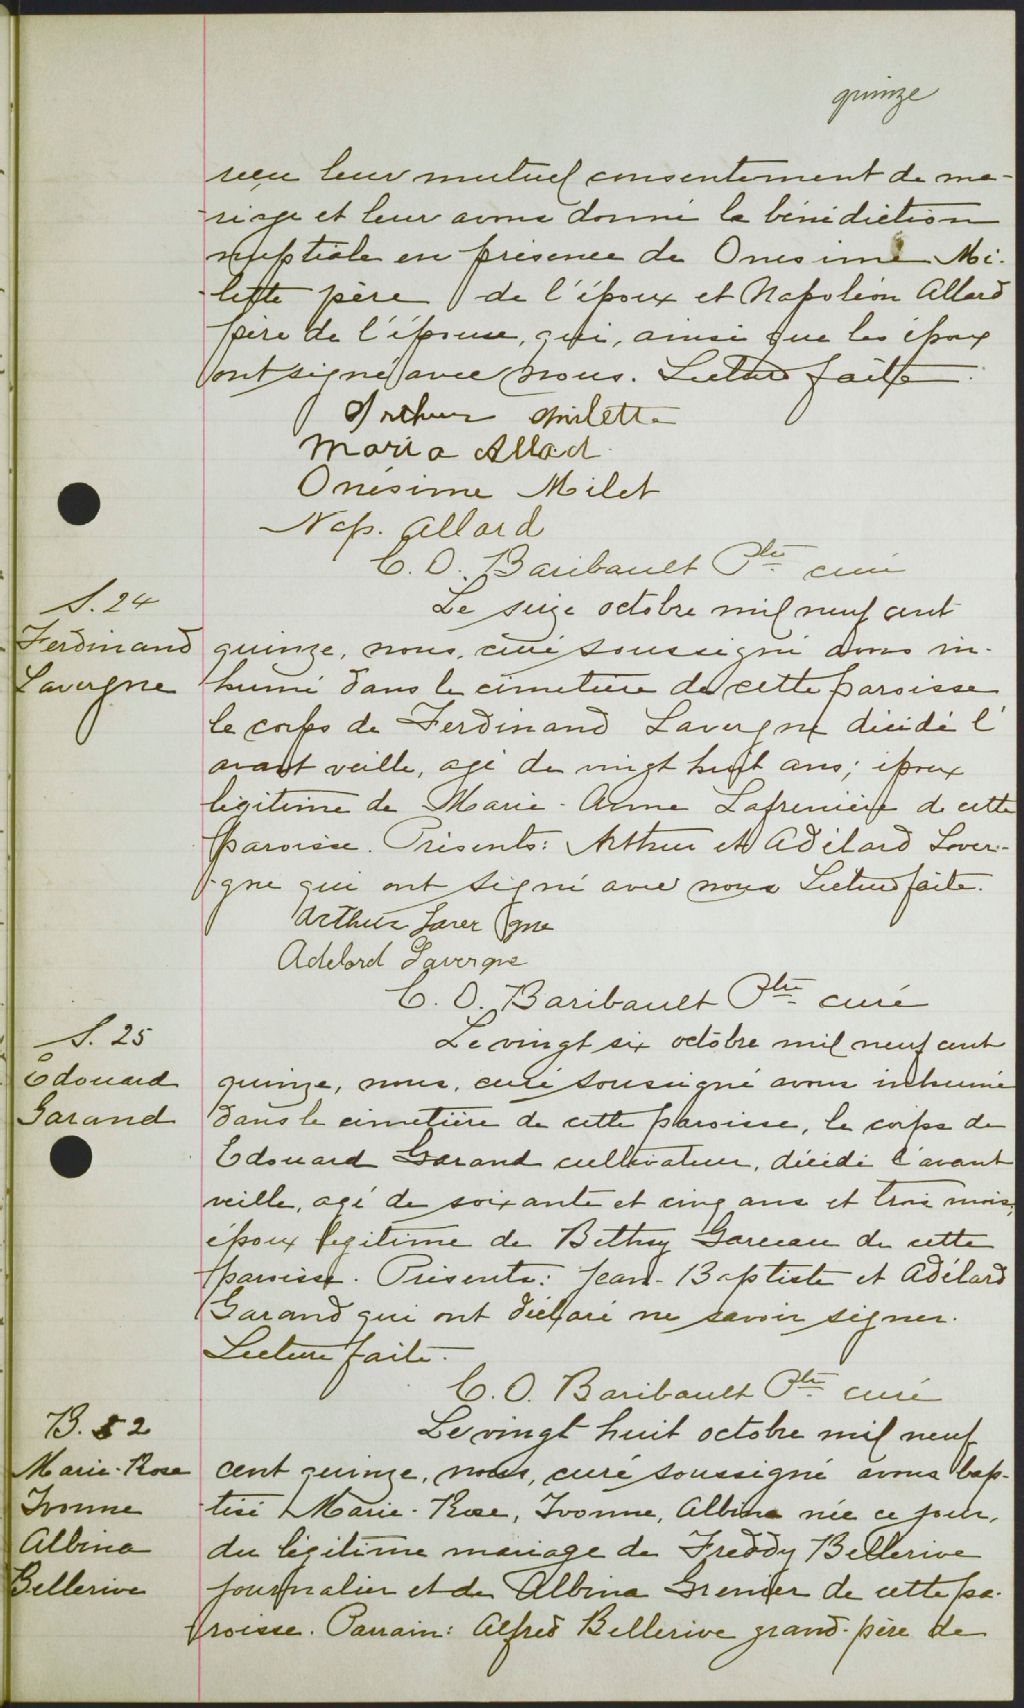 quinze
reçu leur mutuel consentement de ma-
riage et leur avons donné la bénédiction
nuptiale en présence de Onesime Mi-
lette père de l'époux et Napoléon Allard
père de l'épouse, qui, ainsi que les époux
ont signé avec nous. Lecture faite.
Arthur Milette
Maria Allad
Onésime Milet
Nap. Allard
C. O. Baribault Ptre curé
S. 24
Ferdinand
Lavergne
Le seize octobre mil neuf cent
quinze, nous, curé soussigné avons in-
humé dans le cimetière de cette paroisse
le corps de Ferdinand Lavergne décédé l'
avant veille, agé de vingt huit ans; époux
légitime de Marie-Anne Lafrenière de cette
paroisse. Présents: Arthur et Adélard Laver-
gne qui ont signé avec nous Lecture faite.
Arthur Laver gne
Adelord Lavergne
C. O. Baribault Ptre curé
S. 25
Édouard
Garand
Le vingt six octobre mil neuf cent
quinze, nous, curé soussigné avons inhumé
dans le cimetière de cette paroisse, le corps de
Edouard Garand cultivateur, décédé l'avant
veille, agé de soixante et cinq ans et trois mois,
époux légitime de Bethsy Garceau de cette
paroisse. Présents: Jean-Baptiste et Adélard
Garand qui ont déclaré ne savoir signer.
Lecture faite.
C. O. Baribault Ptre curé
B. 52
Marie-Rose
Ivonne
Albina
Bellerive
Le vingt huit octobre mil neuf
cent quinze, nous, curé soussigné avons bap-
tisé Marie-Rose, Ivonne, Albina née ce jour,
du légitime mariage de Freddy Bellerive
journalier et de Albina Grenier de cette pa-
roisse. Parrain: Alfred Bellerive grand-père de